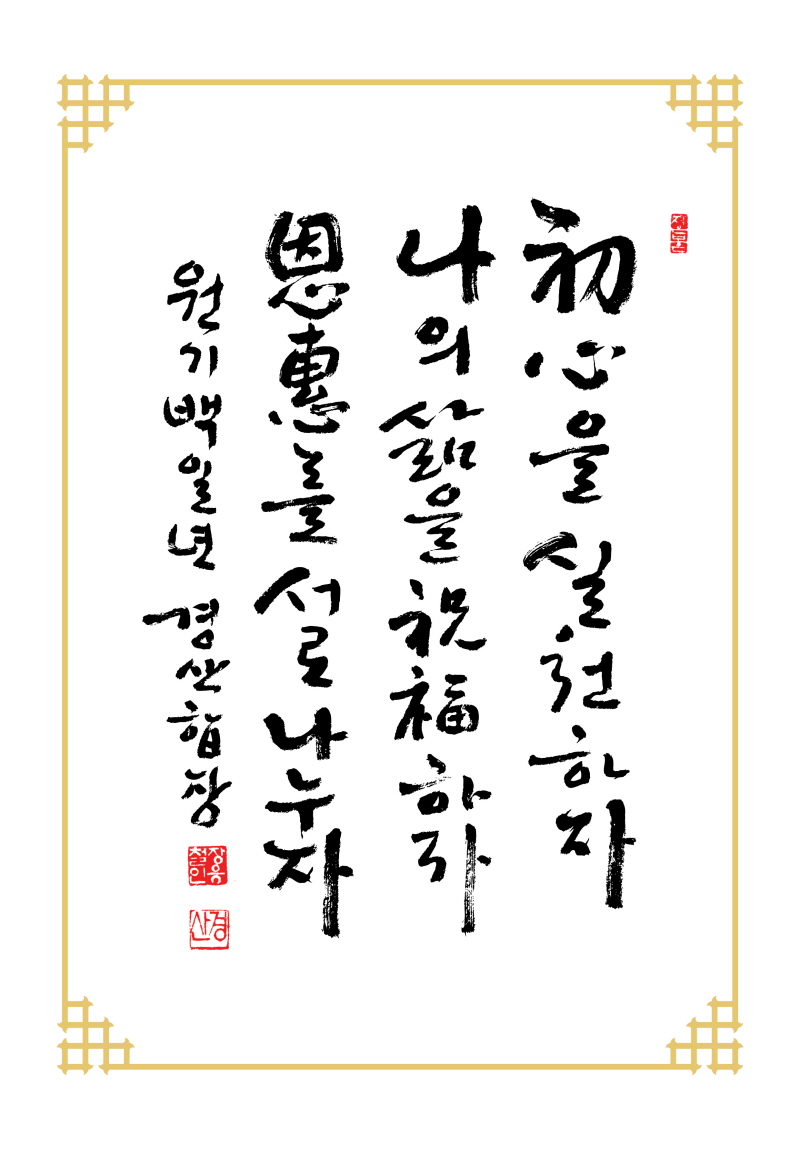 初心을 실천하자
나의 삶을 祝福하자
恩惠를 서로 나누자
원기백일년 경산합장
장응철인
경산